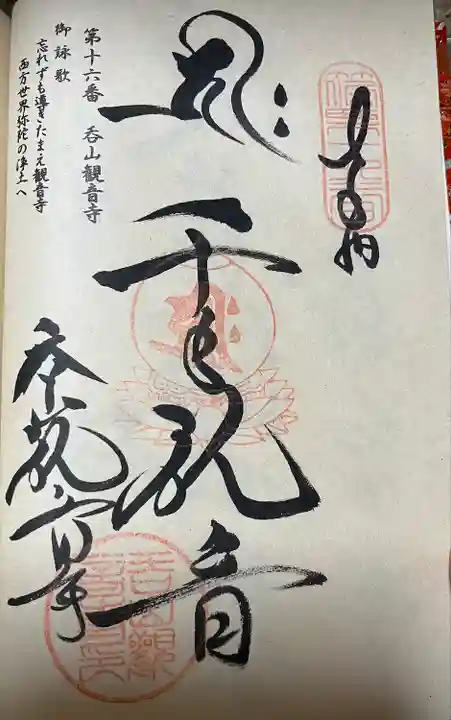 奉納
千手観音
呑山観音寺
第十六番　呑山観音寺
御詠歌
忘れずも導きたまえ観音寺
西方世界弥陀の浄土へ